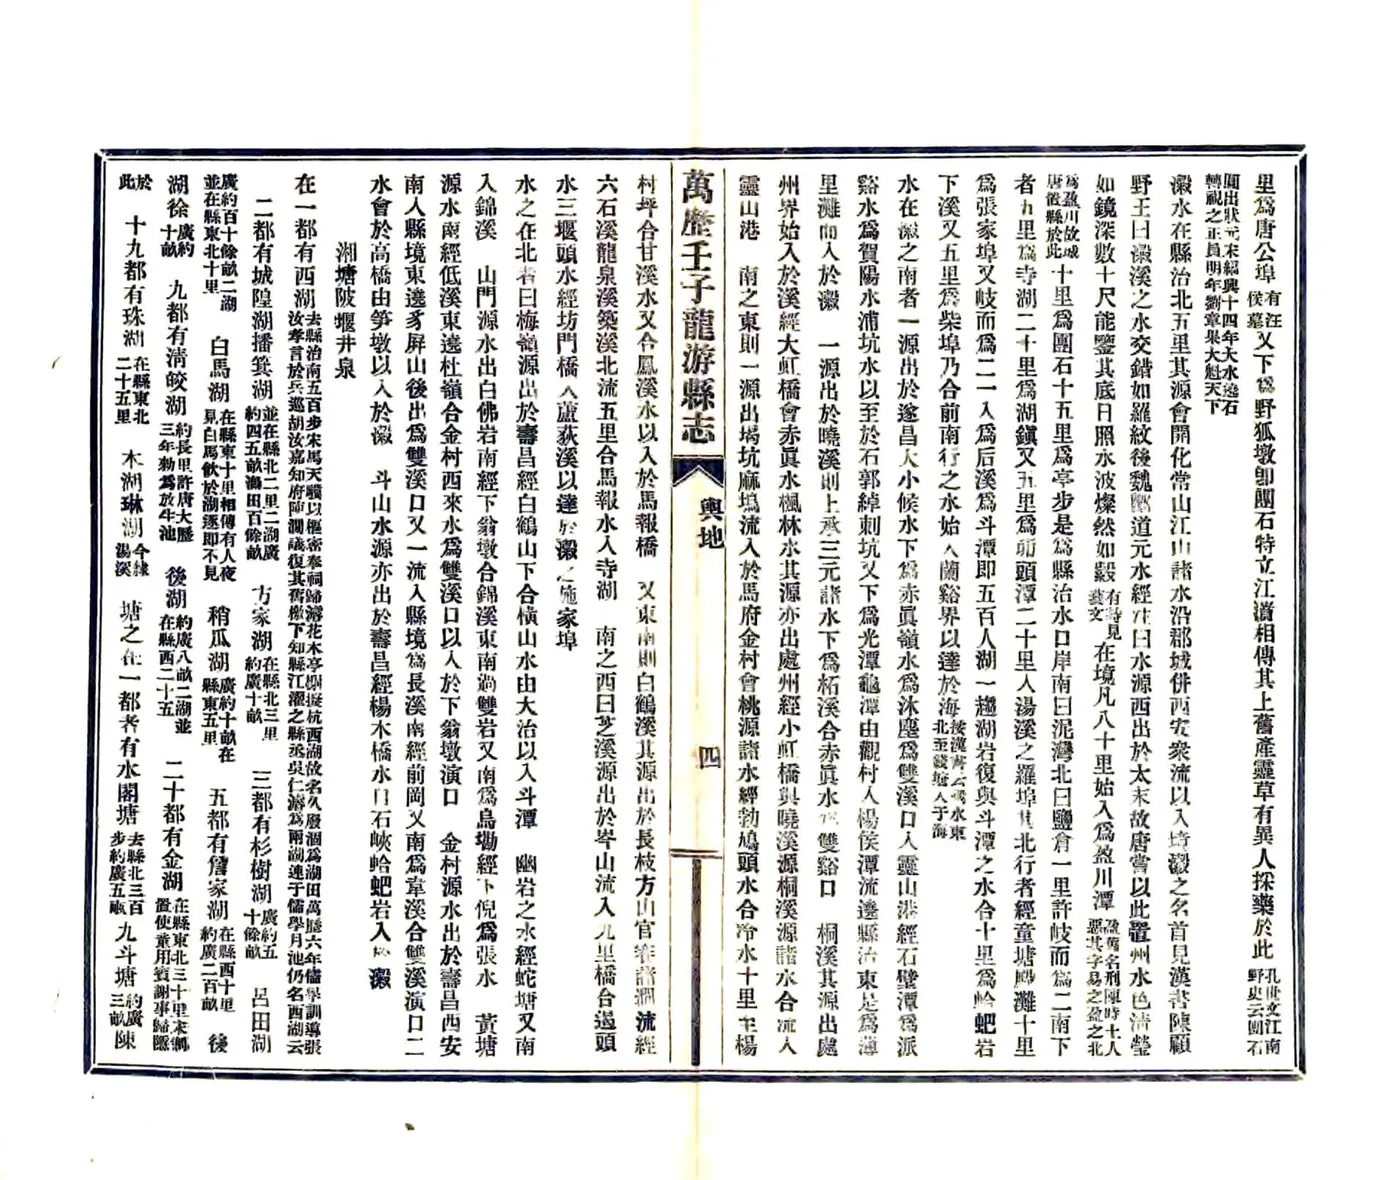 里爲唐公埠有汪侯墓又下爲野狐墩卽團石特立江濱相傳其上舊產靈草有異人採藥於此孔世文江南野史云團石
圓出狀元宋紹興十四年大水遶石轉視之正員明年劉章果大魁天下
瀫水在縣治北五里其源會開化常山江山諸水沿郡城併西安衆流以入境瀫之名首見漢書陳顧
野王曰瀫溪之水交錯如羅紋後魏酈道元水經注曰水源西出於太末故唐嘗以此置州水色淸瑩
如鏡深數十尺能鑒其底日照水波燦然如縠有詩見藝文在境凡八十里始入爲盈川潭盈舊名刑陳時士人惡其字易之盈之北
爲盈川故城唐置縣於此十里爲團石十五里爲亭步是爲縣治水口岸南曰泥灣北曰鹽倉一里許歧而爲二南下
者五里爲寺湖二十里爲湖鎭又五里爲茆頭潭二十里入湯溪之羅埠其北行者經童塘灘十里
爲張家埠又歧而爲二一入爲后溪爲斗潭即五百人湖一趨湖岩復與斗潭之水合十里爲蛤蚆岩
下溪又五里爲柴埠乃合前南行之水始入蘭谿界以達於海按漢書云瀫水東北至錢塘入于海
水在瀫之南者一源出於遂昌大小候水下爲赤眞嶺水爲沐塵爲雙溪口入靈山港經石壁潭爲派
谿水爲賀陽水浦坑水以至於石郭綽刺坑又下爲光潭龜潭由觀村入楊侯潭流遶縣治東是爲薄
里灘而入於瀫　一源出於曉溪則上承三元諸水下爲柘溪合赤眞水爲雙谿口　桐溪其源出處
州界始入於溪經大虹橋會赤眞水楓林水其源亦出處州經小虹橋與曉溪源桐溪源諸水合流入
靈山港　南之東則一源出塲坑麻塢流入於馬府金村會桃源諸水經勃鳩頭水合冷水十里至楊
萬歷壬子龍游縣志
輿地
四
村坪合甘溪水又合鳳溪水以入於馬報橋　又東南則白鶴溪其源出於長枝方山官諸澗流經
六石溪龍泉溪築溪北流五里合馬報水入寺湖　南之西曰芝溪源出於岑山流入九里橋合過頭
水三堰頭水經坊門橋入蘆荻溪以達於瀫之施家埠
水之在北者曰梅嶺源出於壽昌經白鶴山下合橫山水由大治以入斗潭　幽岩之水經蛇塘又南
入錦溪　山門源水出白佛岩南經下翁墩合錦溪東南逈雙岩又南爲烏㘭經下倪爲張水　黃塘
源水南經低溪東遶杜嶺合金村西來水爲雙溪口以入於下翁墩演口　金村源水出於壽昌西安
南入縣境東遶豸屏山後出爲雙溪口又一流入縣境爲長溪南經前岡又南爲韋溪合雙溪演口二
水會於高橋由笋墩以入於瀫　斗山水源亦出於壽昌經楊木橋水口石峽蛤蚆岩入於瀫
湘塘陂堰井泉
在一都有西湖去縣治南五百步宋馬天驥以樞密奉祠歸濬花木亭榭擬杭西湖故名久廢涸爲湖田萬歷六年儒學訓導張汝孝言於兵巡胡汝嘉知府陳瀾議復其舊檄下知縣江濯之縣丞吳仁濬爲兩湖連于儒學月池仍名西湖云
二都有城隍湖播箕湖並在縣北二里二湖廣約四五畝漁田百餘畝　方家湖在縣北三里約廣十畝　三都有杉樹湖廣約五十餘畝　呂田湖
廣約百十餘畝二湖並在縣東北十里　白馬湖在縣東十里相傳有人夜見白馬飮於湖逐即不見　稍瓜湖廣約十畝在縣東五里　五都有詹家湖在縣西十里約廣二百畝　後
湖徐廣約十畝　九都有淸皎湖約長里許唐大歷三年勅爲放生池　後湖約廣八畝二湖並在縣西二十五　二十都有金湖在縣東北三十里宋置使董用賓謝事歸隱
於此　十九都有珠湖在縣東北二十五里　木湖琳湖今隸湯溪　塘之在一都者有水閣塘去縣北三百步約廣五畝九斗塘約廣三畝陳